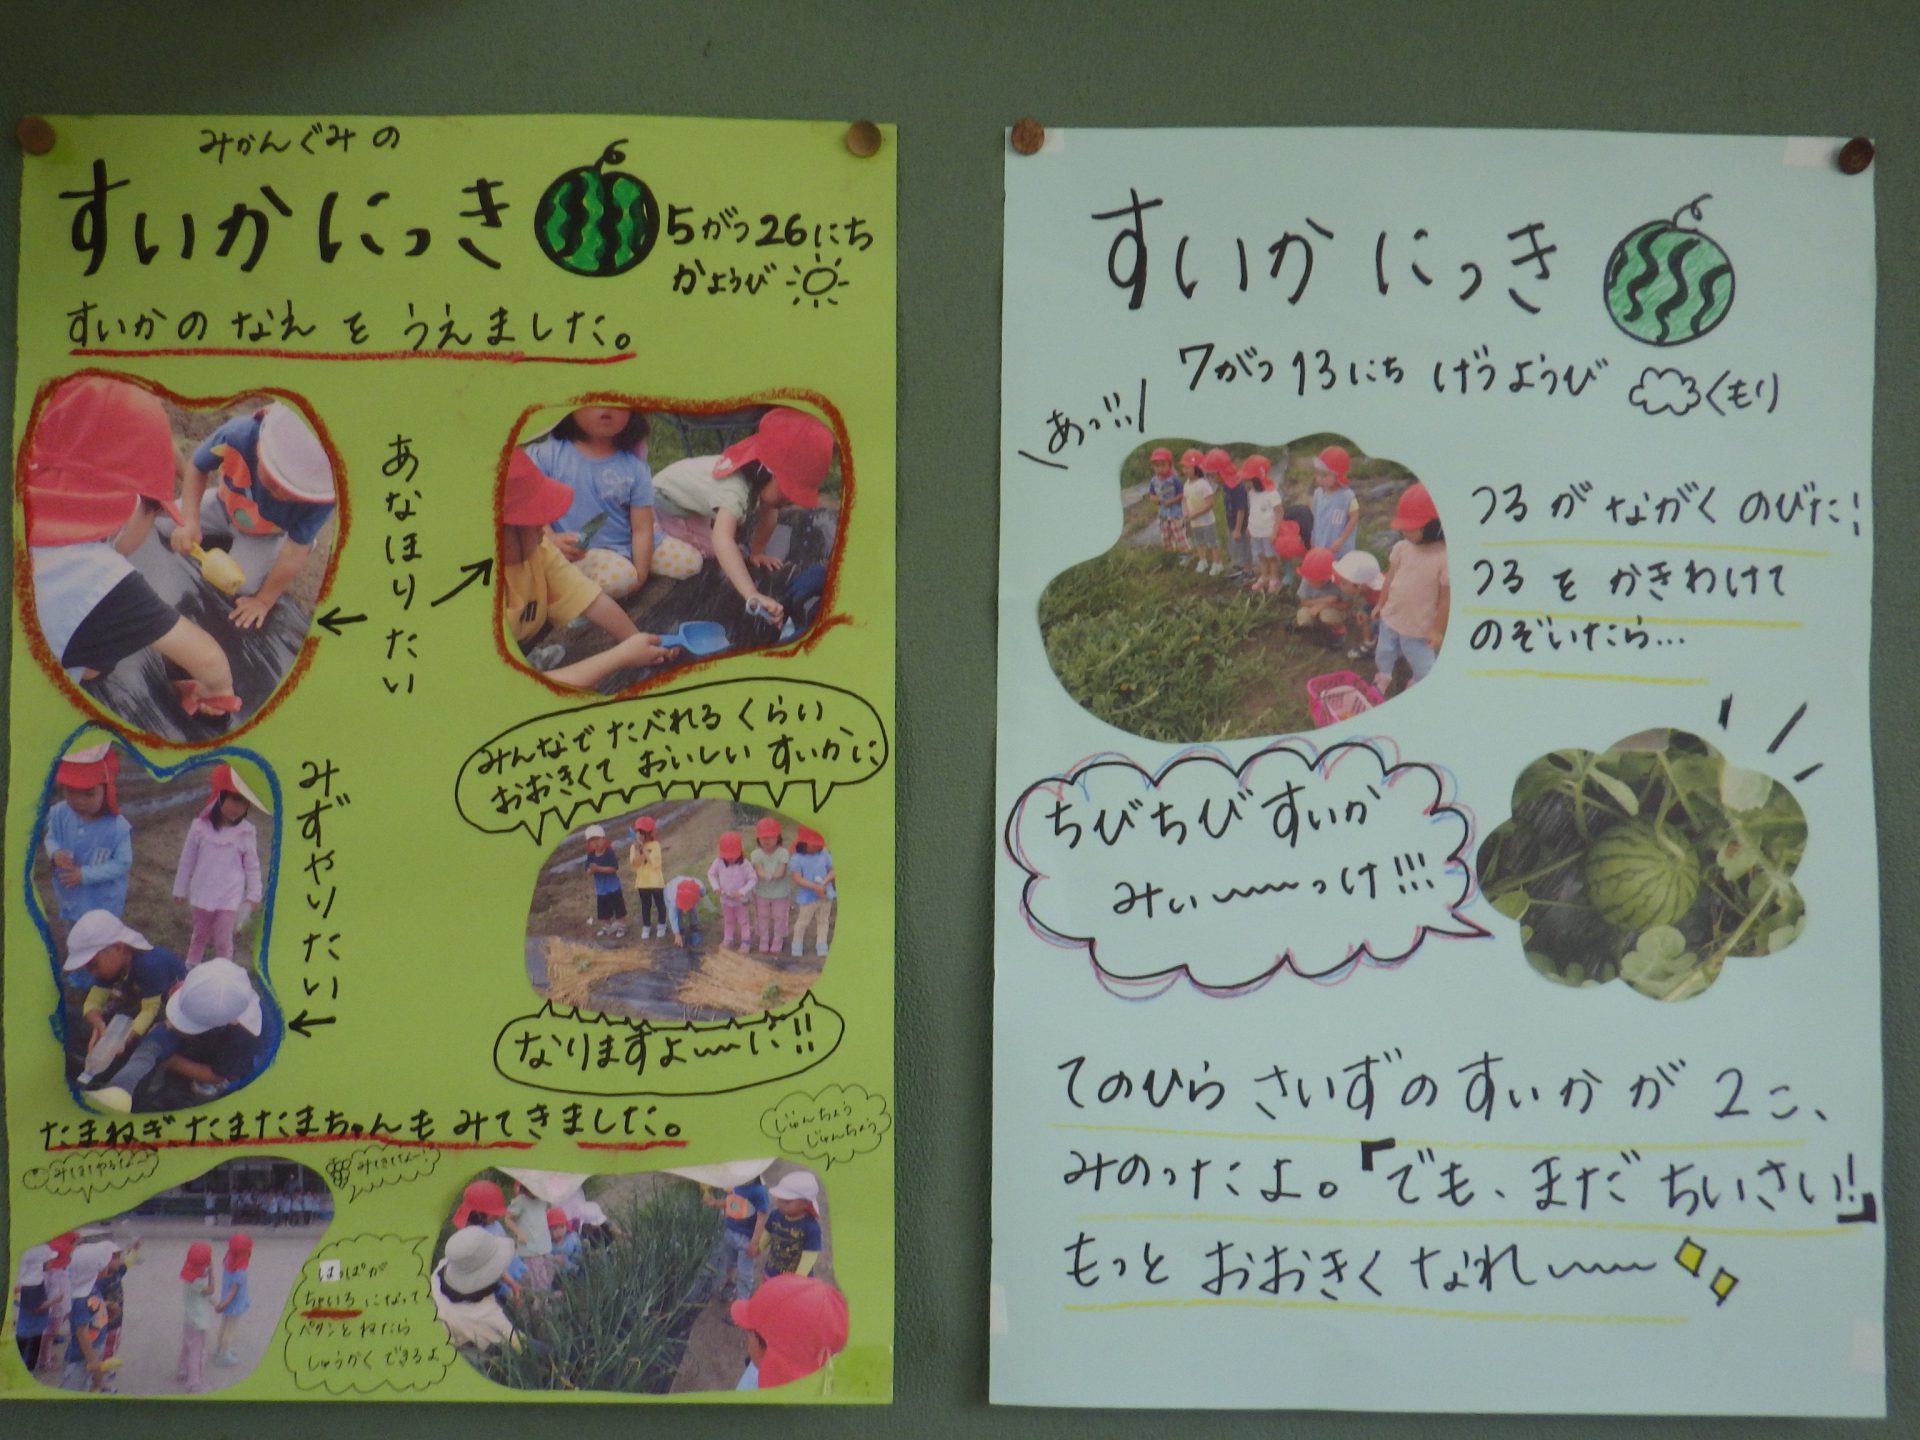 みかんぐみの
すいかにっき
5がつ26にち
かようび
すいかの なえ を うえました。
あなほりたい
みんなで たべれる くらい
おおきくて おいしい すいかに
みずやりたい
なりますよ〜〜に!!
たまねぎ、たまたまちゃんも みてきました。
じゅんちょう
じゅんちょう
はっぱが
ちゃいろになって
パタンと ねたら
しゅうかく できるよ
すいか にっき
7がつ 13にち げつようび
くもり
あっ!!
つるが ながく のびた!
つるを かきわけて
のぞいたら…
ちびちび すいか
みぃ〜〜っけ!!!
てのひら さいずの すいか が 2こ、
みのったよ。『でも、まだ ちいさい!』
もっと おおきく なれ〜〜